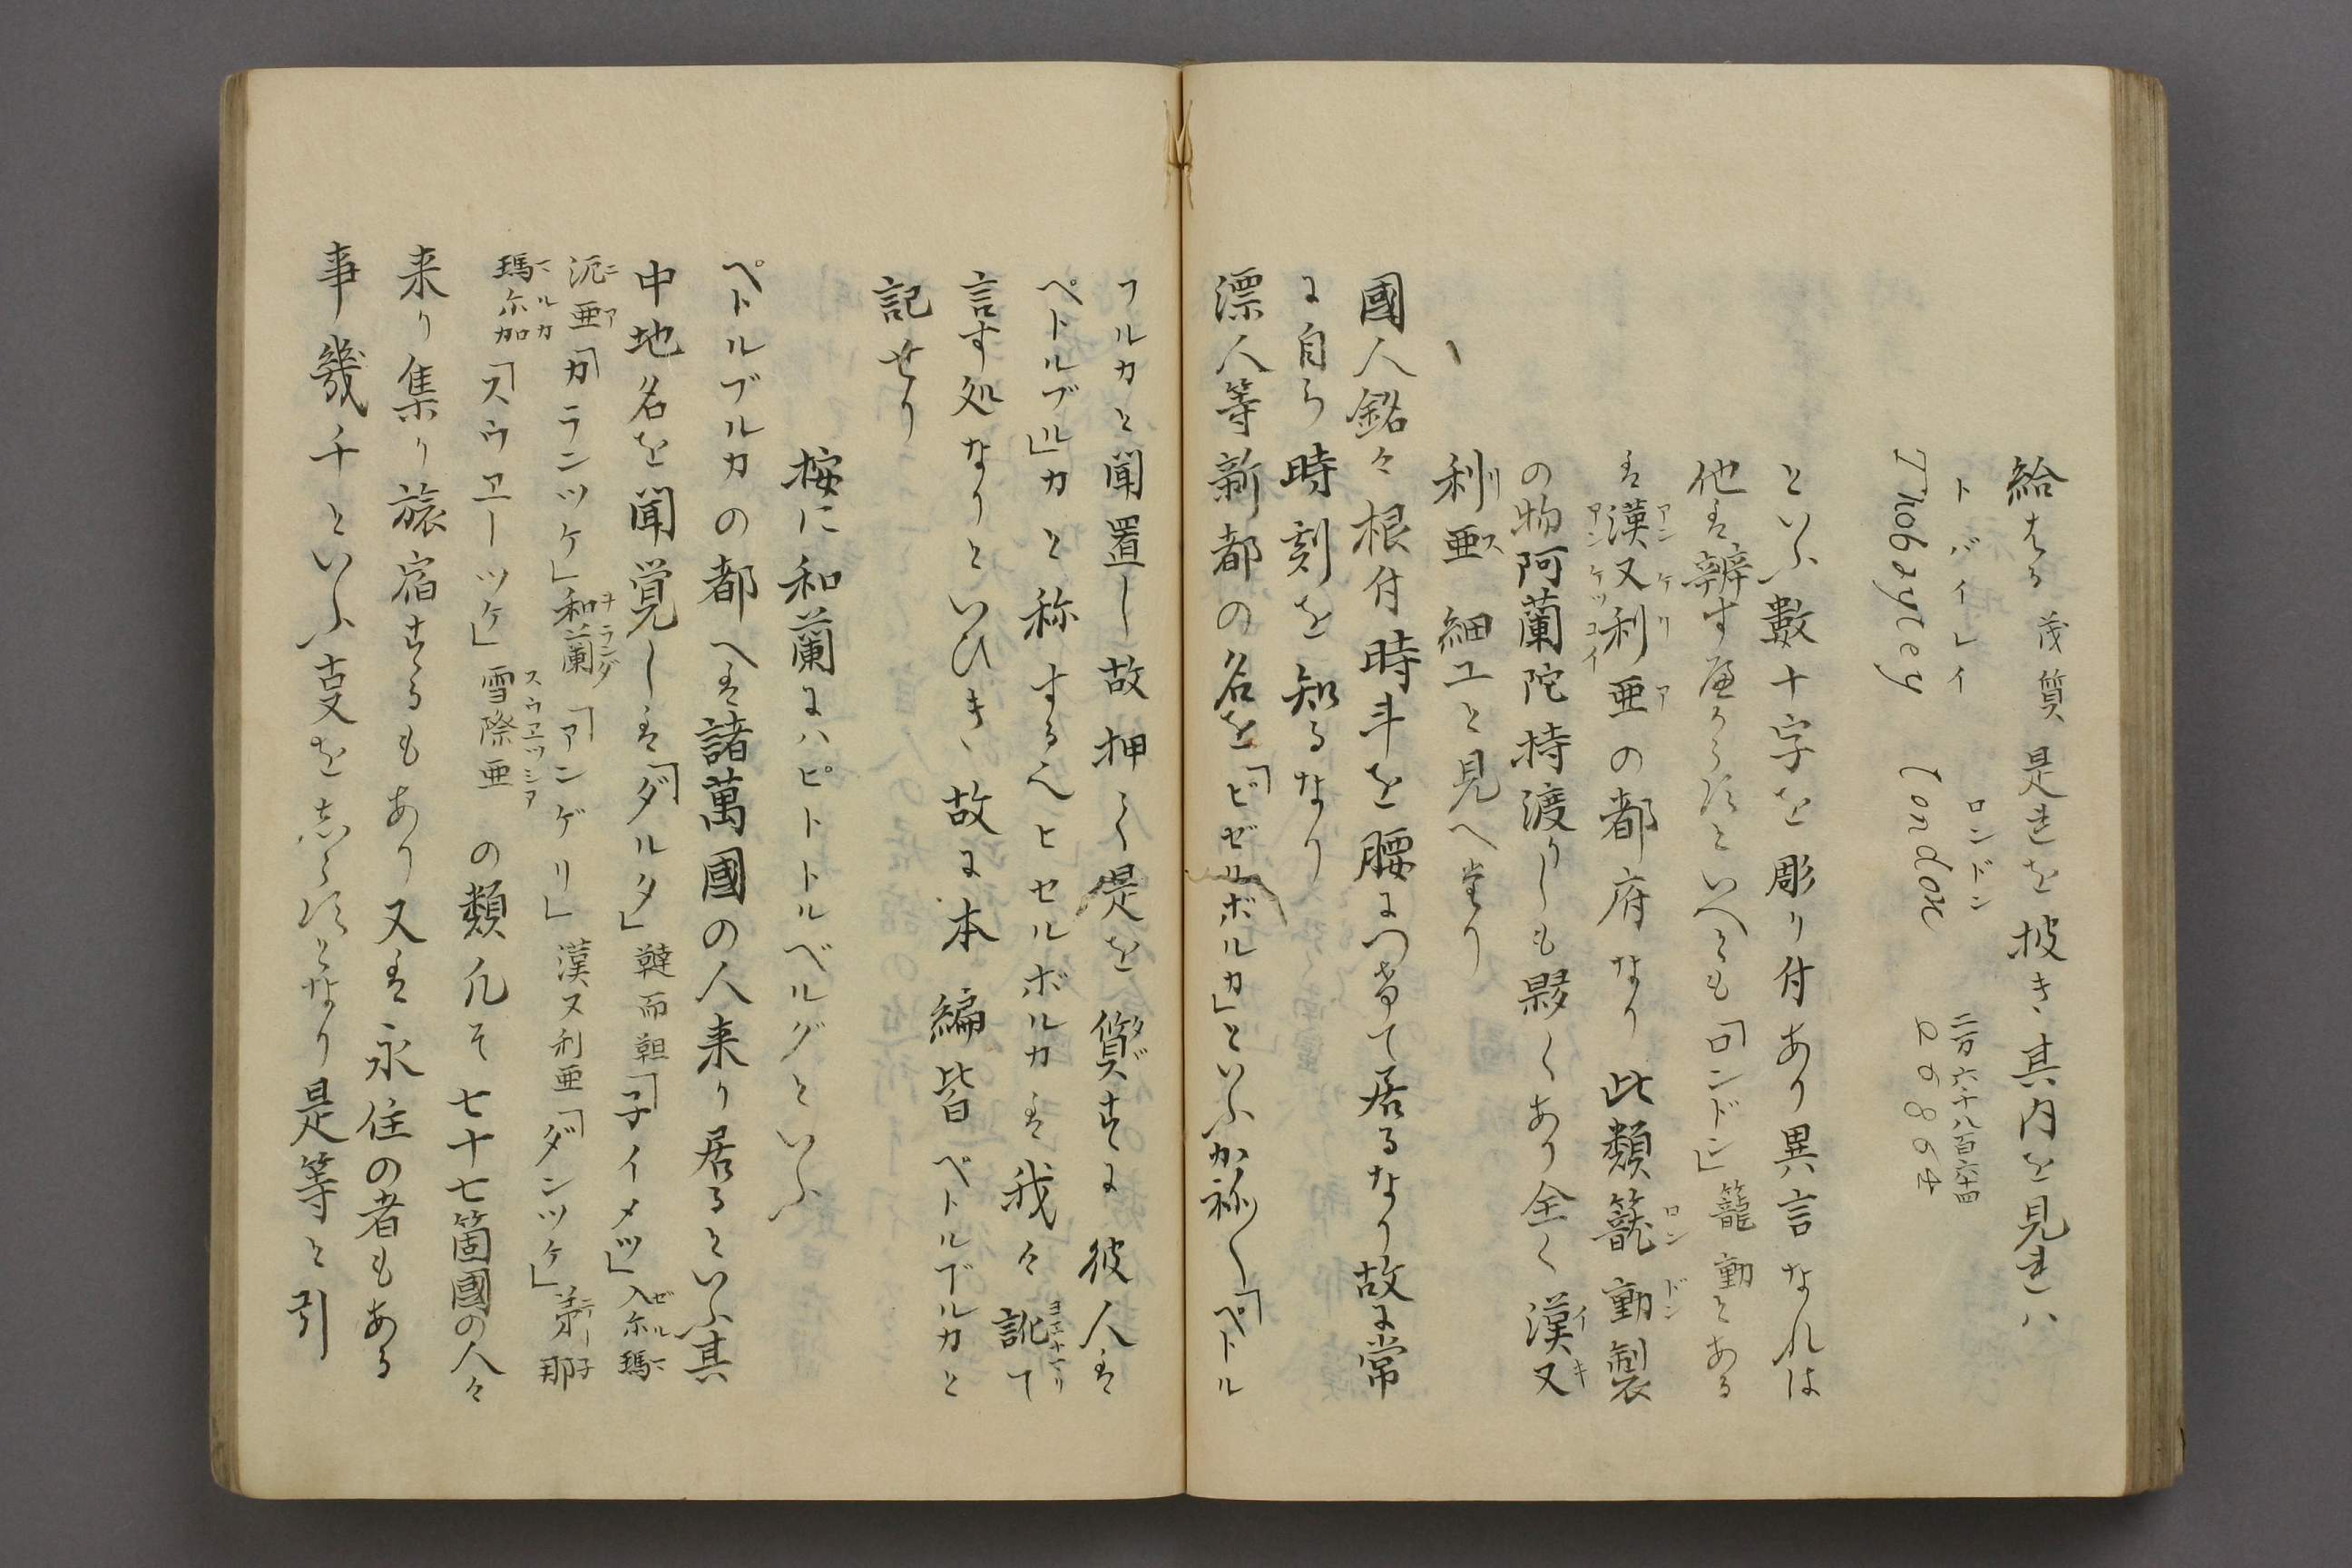 給ふる 茂質 是を披き其内を見れハ
トバイレイ ロンドン 二万六十八百六十四
Thobeytey London 26864
といふ數十字を彫り付あり異言なれは
他は辨す應からすといへとも「ロンドン」籠動とある
は漢又利亜の都府なり此類籠動製
アンゲリア アンゲツコイ ロンドン
の物阿蘭陀持渡りしも夥くあり全く漢又
イギ
利亜細工と見へたり
リス
國人銘々根付時斗を腰につけて居るなり故に常
に自ら時刻を知るなり
漂人等新都の名を「ビゼルボルカ」といふか称く「ペトル
フルカと聞置し故押く是を質すに彼人は
タヾ
ペトルブル」カと称するヘヒセルボルカは我々訛て
ヨコナマリ
言す処なりといひき、故に本編皆ペトルブルカと
記せり
按に和蘭にハピトトルベルグといふ
ペトルブルカの都へは諸萬國の人来り居るといふ其
中地名を聞覚しは「ダルタ」韃而靼「子イメツ」入尓瑪
ゼルマ
泥亜「カランツケ」和蘭「アンゲリ」漢又利亜「ダンツケ」弟那
ニア ヲランダ テー子
瑪尓加「スウヱーツケ」雪際亜 の類凡そ七十七箇國の人々
マルカ スウヱツシア
来り集り旅宿するもあり又は永住の者もある
事幾千といふ事をしらすとなり是等と引